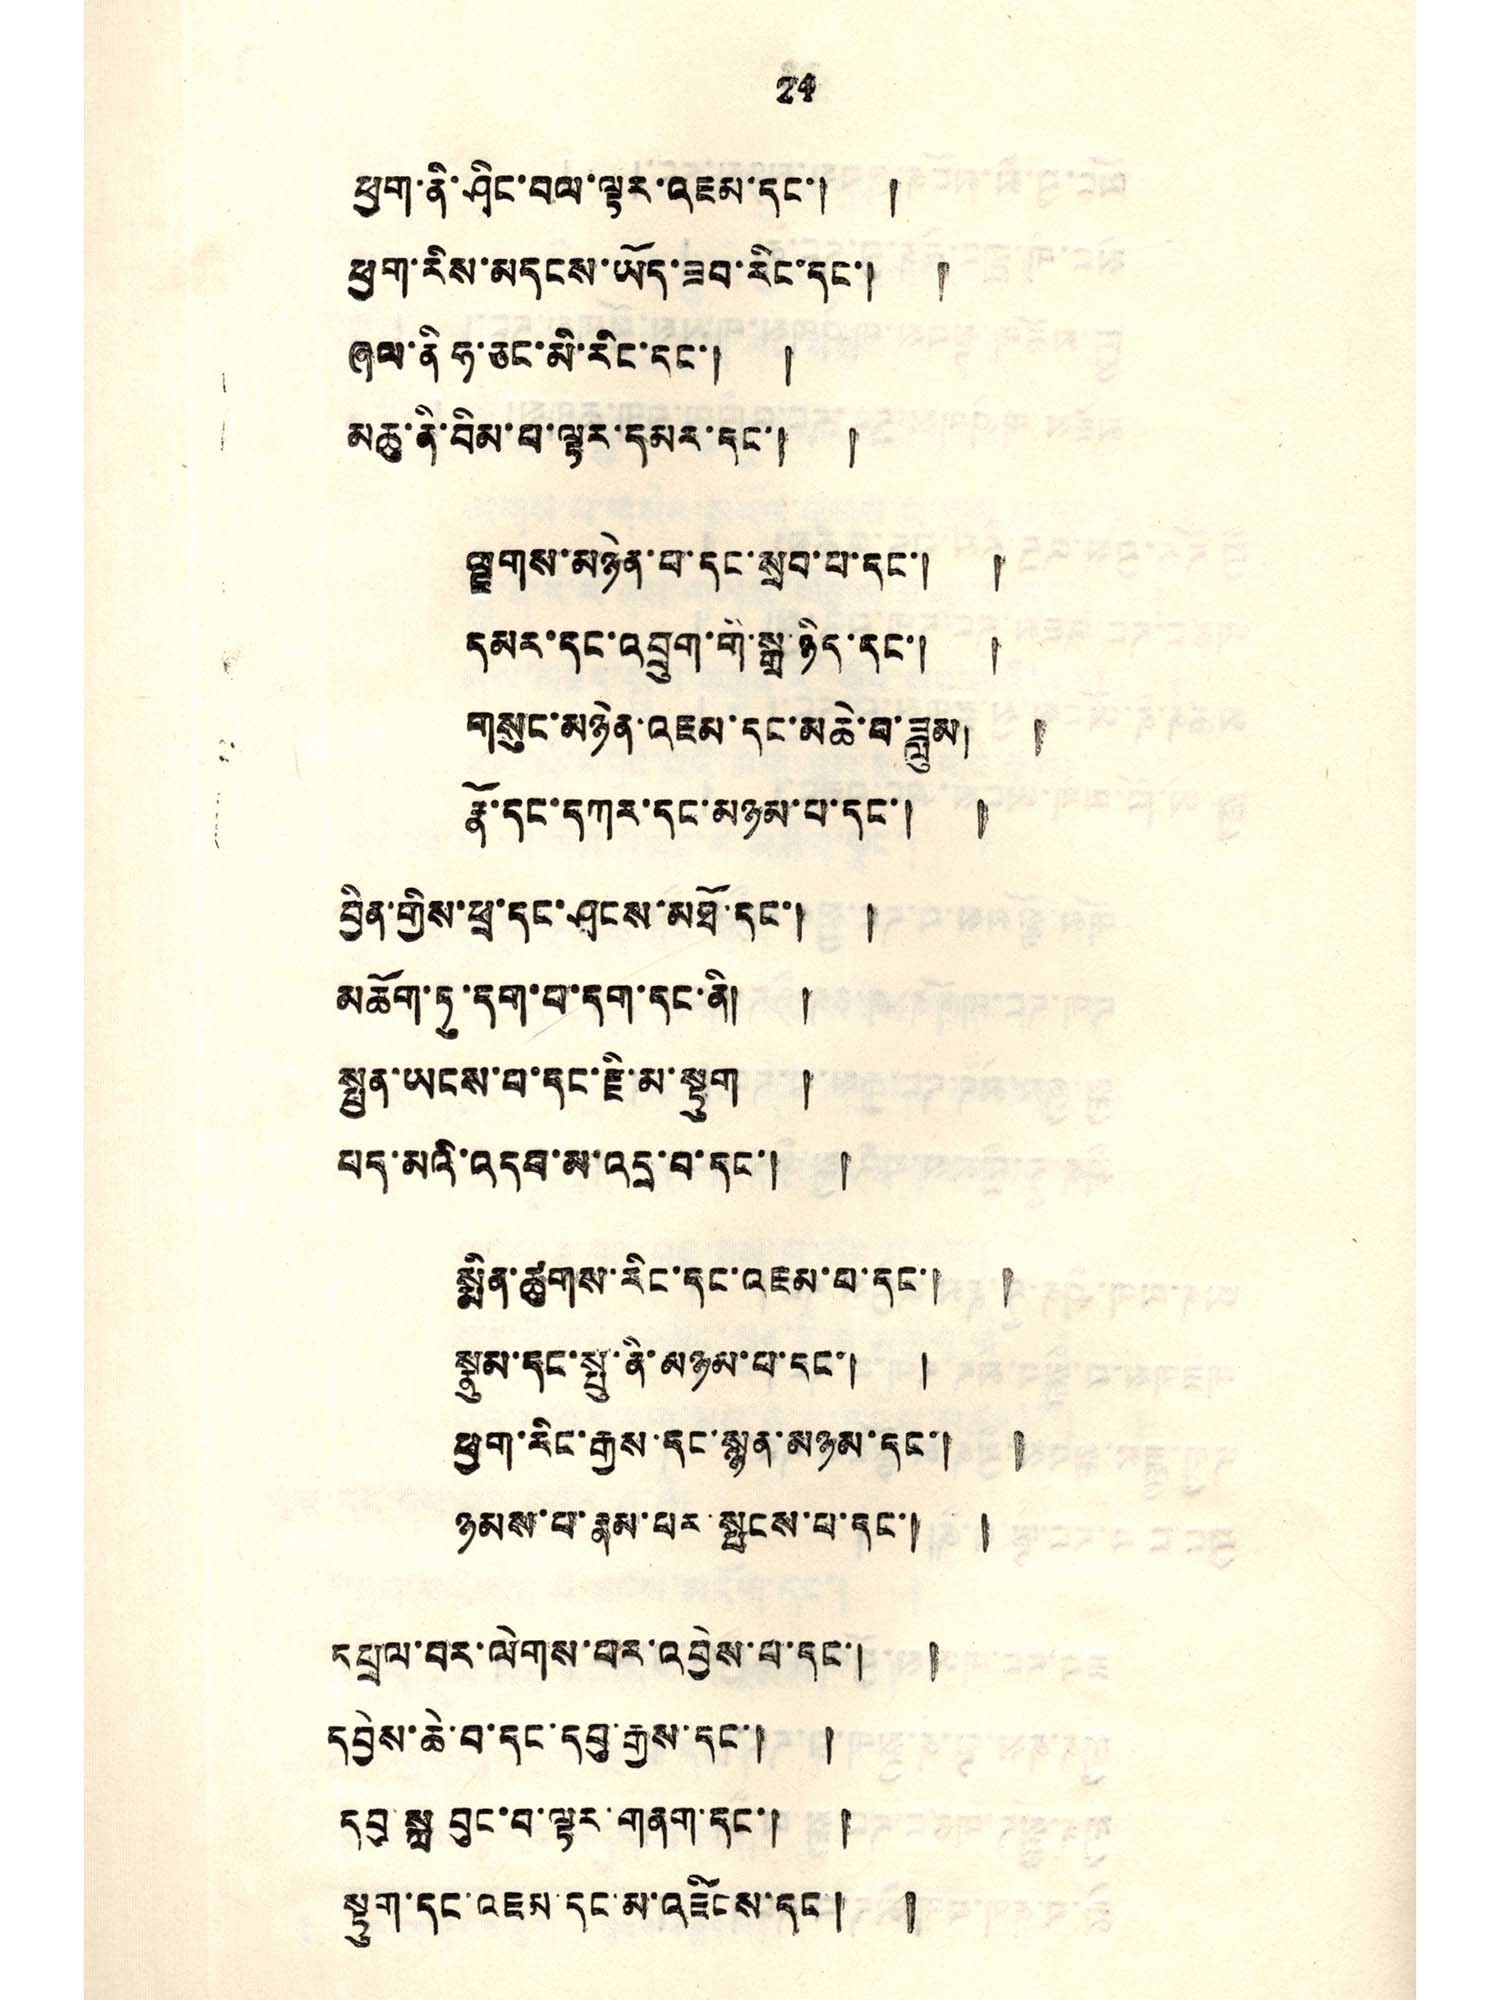 24
ཕྱག་ནི་ཤིང་བལ་ལྟར་འཇམ་དང་། །
ཕྱག་རིས་མདངས་ཡོད་ཟབ་རིང་དང་། །
ཞལ་ནི་ཧ་ཅང་མི་རིང་དང་། །
མཆུ་ནི་བིམ་པ་ལྟར་དམར་དང་། །
ལྗགས་མཉེན་པ་དང་སྲབ་པ་དང་། །
དམར་དང་འབྲུག་གི་སྒྲ་ཉིད་དང་། །
གསུང་མཉེན་འཇམ་དང་མཆེ་བ་ཟླུམ། །
རྣོ་དང་དཀར་དང་མཉམ་པ་དང་། །
བྱིན་གྱིས་ཕྲ་དང་ཤངས་མཐོ་དང་། །
མཆོག་ཏུ་དག་པ་དག་དང་ནི། །
སྤྱན་ཡངས་པ་དང་རྫི་མ་སྟུག །
པད་མའི་འདབ་མ་འདྲ་བ་དང་། །
སྨིན་ཚུགས་རིང་དང་འཇམ་པ་དང་། །
སྣུམ་དང་སྤུ་ནི་མཉམ་པ་དང་། །
ཕྱག་རིང་རྒྱས་དང་སྙན་མཉམ་དང་། །
ཉམས་པ་རྣམ་པར་སྤངས་པ་དང་། །
དཔྲལ་བར་ལེགས་པར་འབྱེས་པ་དང་། །
དབྱེས་ཆེ་བ་དང་དབུ་རྒྱས་དང་། །
དབུ་སྐྲ་བུང་བ་ལྟར་གནག་དང་། །
སྟུག་དང་འཇམ་དང་མ་འཛིངས་དང་། །